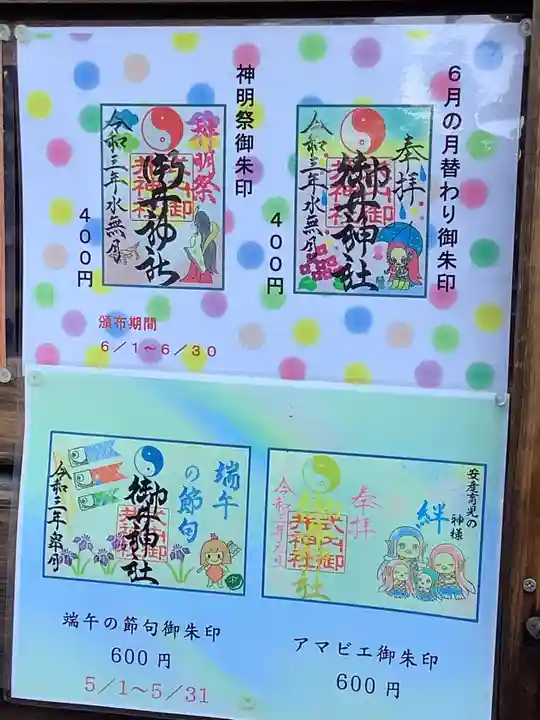 6月の月替わり御朱印
400円
奉拝
御井神社
令和三年水無月
神明祭御朱印
400円
神明祭
御井神社
令和三年水無月
頒布期間
6/1~6/30
端午の節句
御井神社
令和三年皐月
端午の節句御朱印
600円
5/1~5/31
安産育児の
神様
絆
奉拝
式内御
井神社
アマビエ御朱印
600円